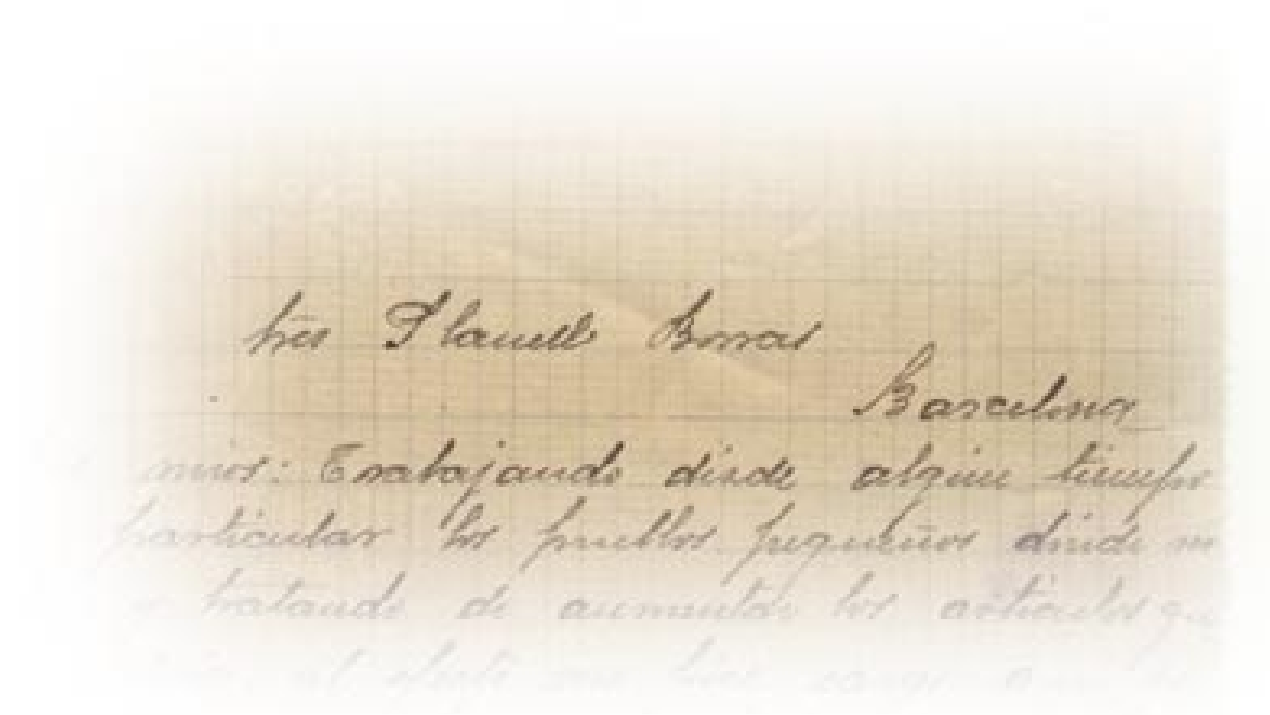 Planell Borras
Barcelona
mios: Trabajando desde algun tiempo
particular los pueblos pequeños donde
tratando de aumentar los articulos
al efecto